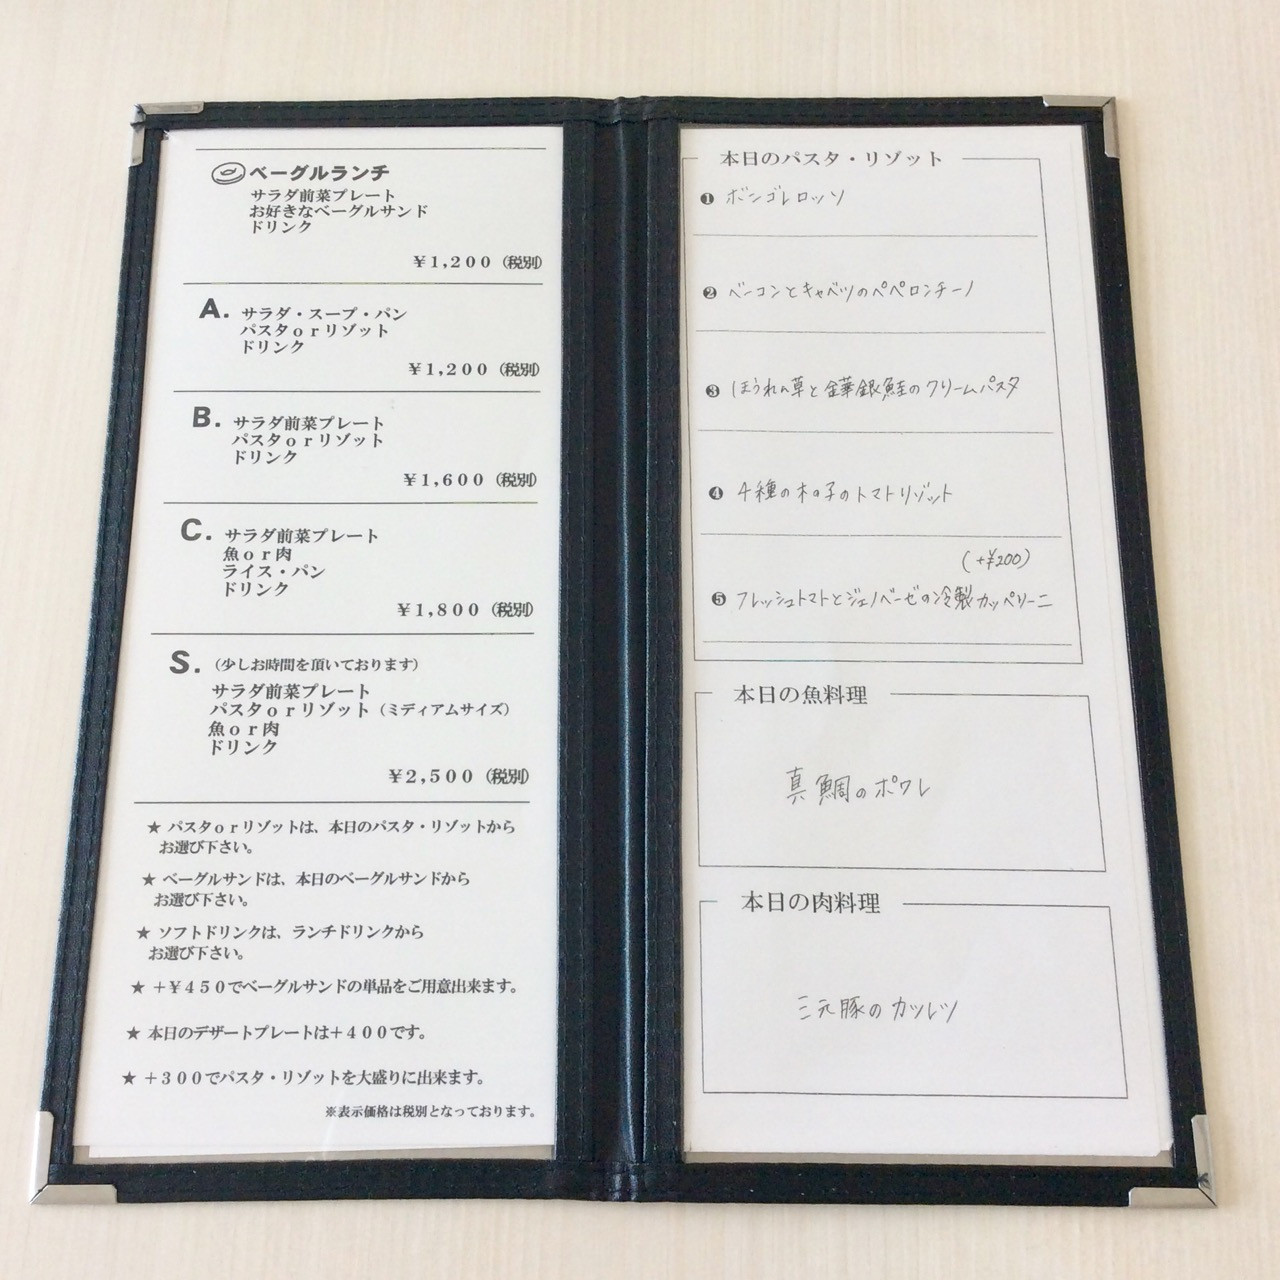 ベーグルランチ
サラダ前菜プレート
お好きなベーグルサンド
ドリンク
¥1,200（税別）
A. サラダ・スープ・パン
パスタorリゾット
ドリンク
¥1,200（税別）
B. サラダ前菜プレート
パスタorリゾット
ドリンク
¥1,600（税別）
C. サラダ前菜プレート
魚or肉
ライス・パン
ドリンク
¥1,800（税別）
S.（少しお時間を頂いております）
サラダ前菜プレート
パスタorリゾット（ミディアムサイズ）
魚or肉
ドリンク
¥2,500（税別）
★ パスタorリゾットは、本日のパスタ・リゾットから
お選び下さい。
★ ベーグルサンドは、本日のベーグルサンドから
お選び下さい。
★ ソフトドリンクは、ランチドリンクから
お選び下さい。
★ +¥450でベーグルサンドの単品をご用意出来ます。
★ 本日のデザートプレートは+400です。
★ +300でパスタ・リゾットを大盛りに出来ます。
※表示価格は税別となっております。
本日のパスタ・リゾット
❶ ボンゴレロッソ
❷ ベーコンとキャベツのペペロンチーノ
❸ ほうれん草と金華銀鮭のクリームパスタ
❹ 4種の木の子のトマトリゾット
(+¥200)
❺ フレッシュトマトとジェノベーゼの冷製カッペリーニ
本日の魚料理
真鯛のポワレ
本日の肉料理
三元豚のカツレツ